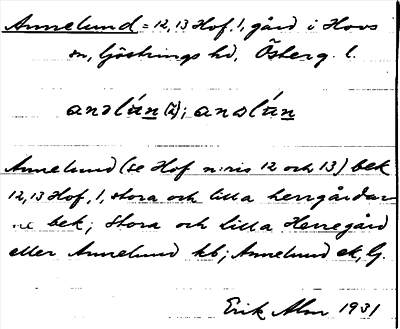 Annelund = 12, 13 Hof, 1, gård i Hovs
sn, Göstrings hd, Österg. l.
anəlún (2); anəlún
Annelund (se Hof n:ris 12 och 13) bek
12, 13 Hof, 1, stora och lilla herrgårdar
ne bek; Stora och lilla Herregård
eller Annelund kb; Annelund ek, G.
Erik Alm 1931